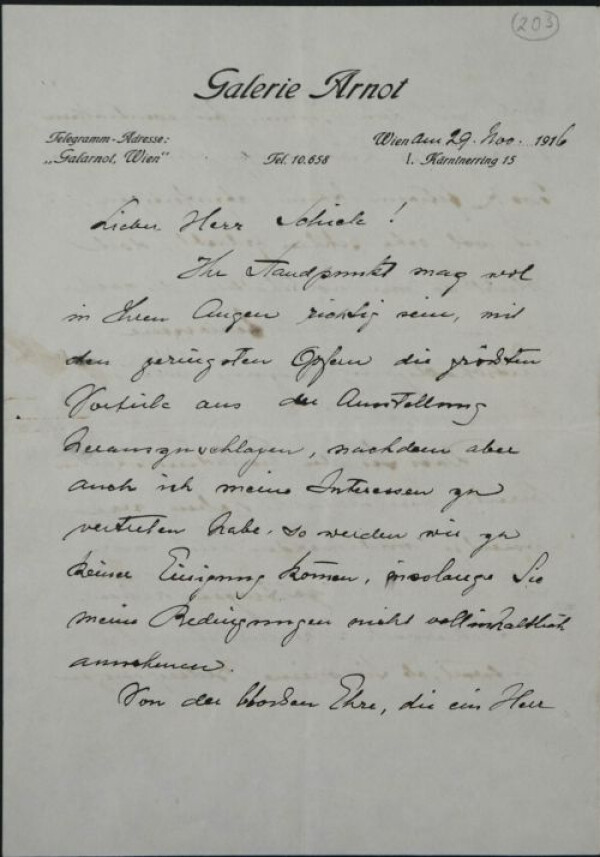 (203)
Galerie Arnot
Telegramm-Adresse:
„Galarnot, Wien"
Tel. 10.658
Wien am 29. Nov. 1916
I. Kärntnerring 15
Lieber Herr Schiele!
Ihr Standpunkt mag wol
in Ihren Augen richtig sein, mit
den geringsten Opfern die größten
Vorteile aus der Ausstellung
herauszuschlagen, nachdem aber
auch ich meine Interessen zu
vertreten habe, so werden wir zu
keiner Einigung kommen, insolange Sie
meine Bedingungen nicht vollinhaltlich
annehmen.
Von der blossen Ehre, die ein Herr